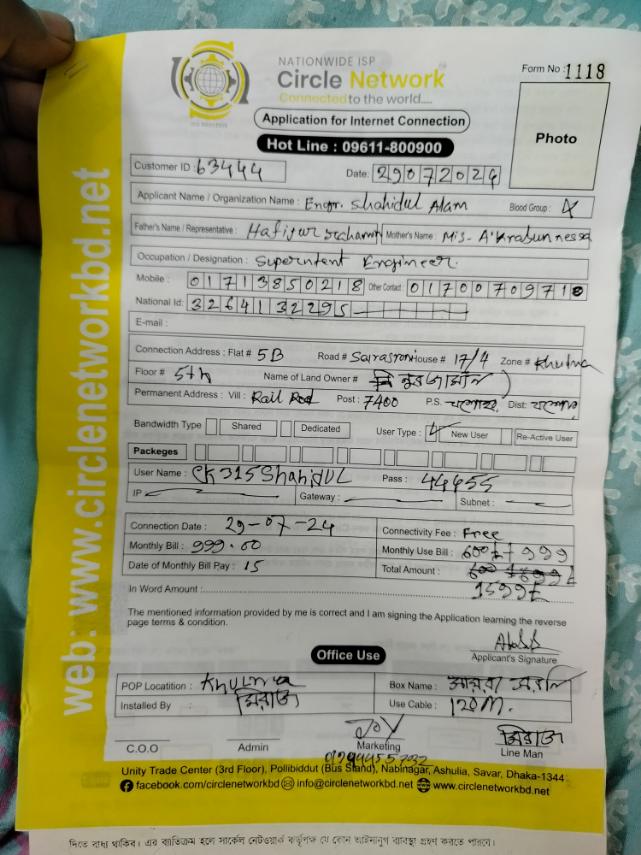 NATIONWIDE ISP
Circle Network
Connected to the world....
Form No : 1118
Application for Internet Connection
Hot Line : 09611-800900
Photo
Customer ID : 63444
Date: 29072024
Applicant Name / Organization Name : Engr. Shahidul Alam Blood Group :
Father's Name / Representative : Hafijur Mother's Name :
Occupation / Designation : Superintent Engineer.
Mobile : 01713850218 Other Contact 01700709718
National Id: 3264132295
E-mail :
Connection Address : Flat # 5B Road # House # 17/4 Zone # Khulna
Floor # 5th Name of Land Owner # নুরজামান
Permanent Address : Vill : Rail Rod Post : 7400 P.S. যশোহর Dist: যশোর
Bandwidth Type Shared Dedicated User Type : New User Re-Active User
Packeges
User Name : CK315ShahidUL Pass : 44455
IP Gateway : Subnet :
Connection Date : 29-07-24 Connectivity Fee : Free
Monthly Bill : 999.00 Monthly Use Bill : 600+ 999
Date of Monthly Bill Pay : 15 Total Amount :
1599
In Word Amount :
The mentioned information provided by me is correct and I am signing the Application learning the reverse
page terms & condition.
Applicant's Signature
Office Use
POP Locatition : Khulna Box Name :
Installed By : মিরাজ Use Cable : 120M.
C.O.O Admin JOY Marketing মিরাজ Line Man
Unity Trade Center (3rd Floor), Pollibiddut (Bus Stand), Nabinagar, Ashulia, Savar, Dhaka-1344
facebook.com/circlenetworkbd info@circlenetworkbd.net www.circlenetworkbd.net
web: www.circlenetworkbd.net
দিতে বাধ্য থাকিব। এর ব্যতিক্রম হলে সার্কেল নেটওয়ার্ক কর্তৃপক্ষ যে কোন আইনানুগ ব্যবস্থা গ্রহণ করতে পারবে।